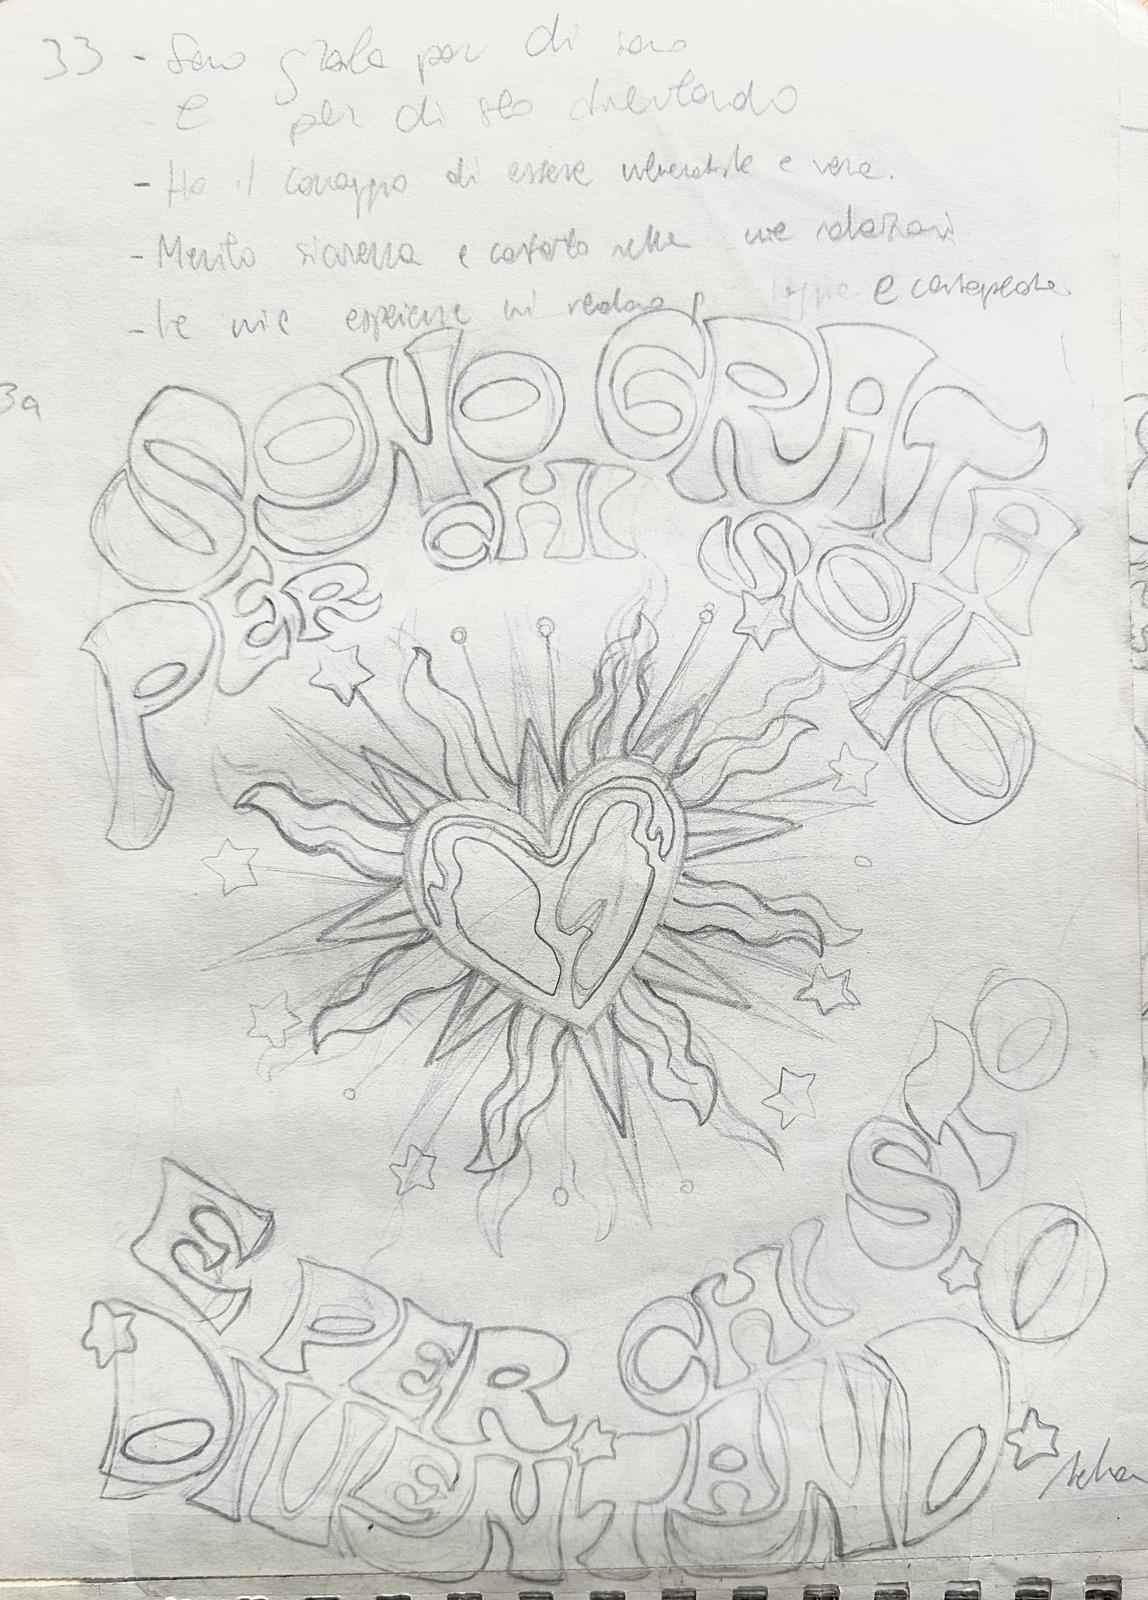 33 - Sono grata per chi sono
e per chi sto diventando
- Ho il coraggio di essere vulnerabile e vera.
- Merito sicurezza e conforto nelle mie relazioni
- Le mie esperienze mi rendono e
3a
SONO GRATA
PER CHI SONO
E PER CHI STO
DIVENTANDO